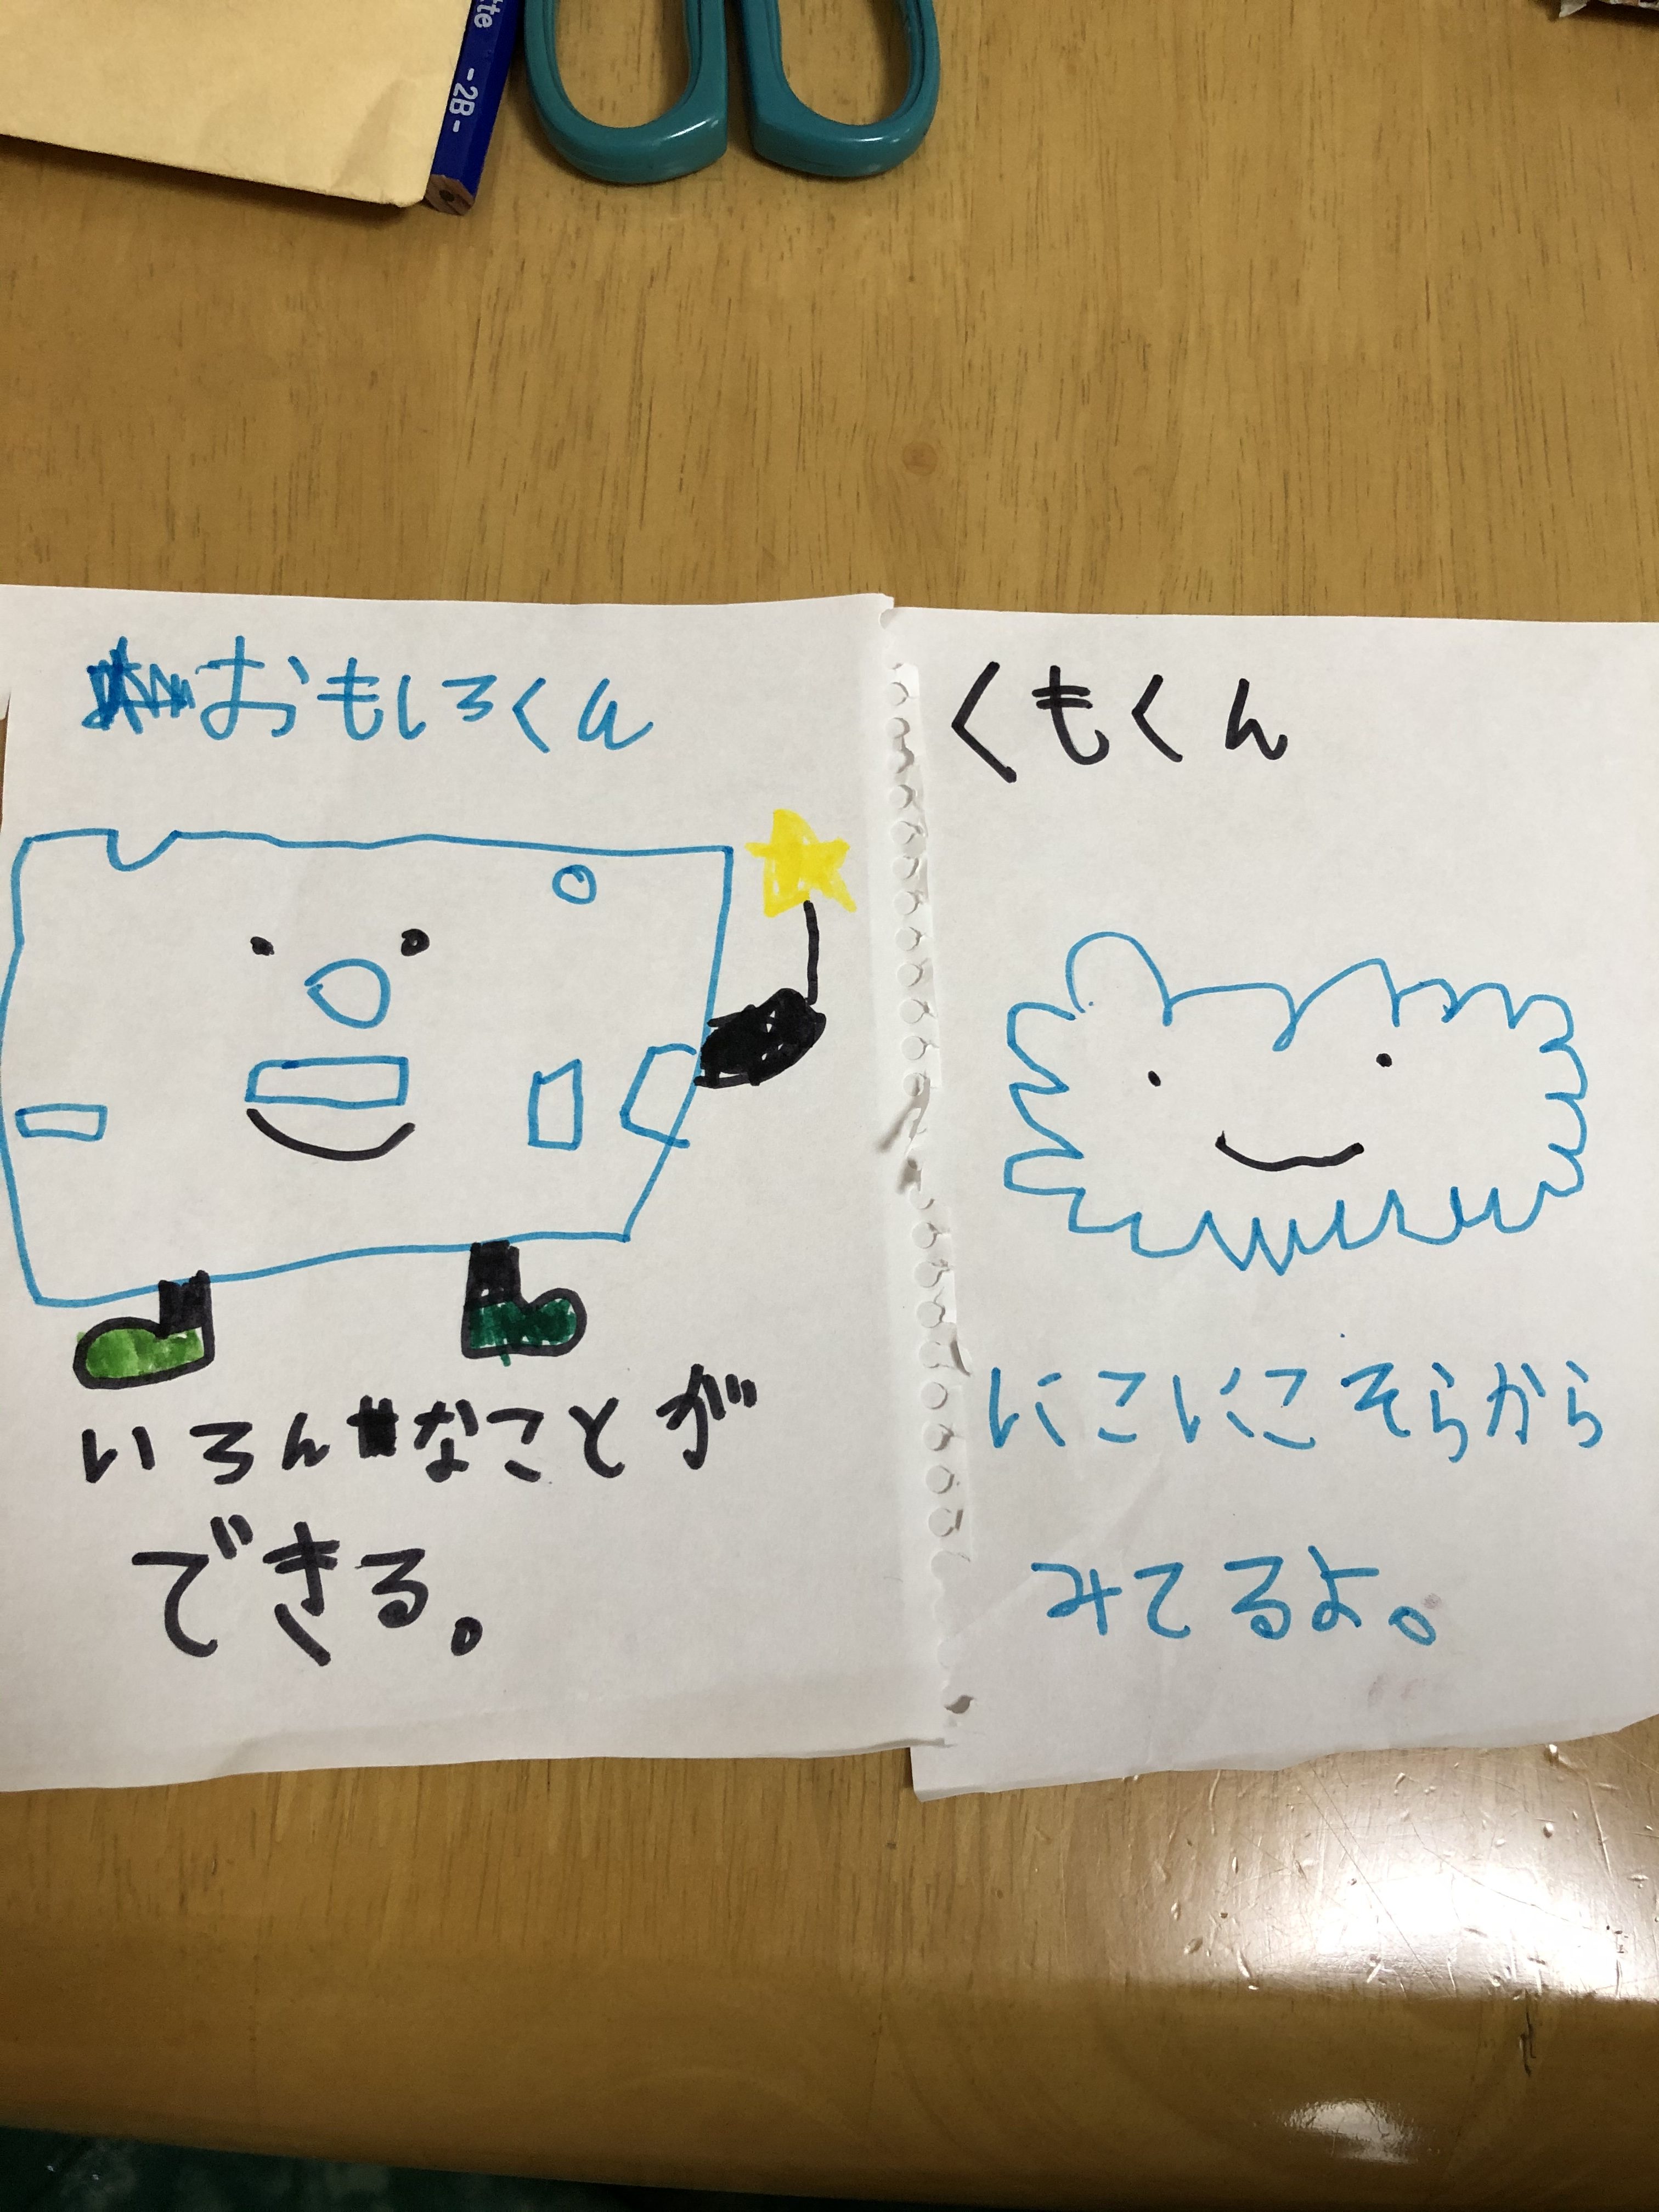 tte -2B-
おもしろくん
いろんなことが
できる。
くもくん
にこにこそらから
みてるよ。